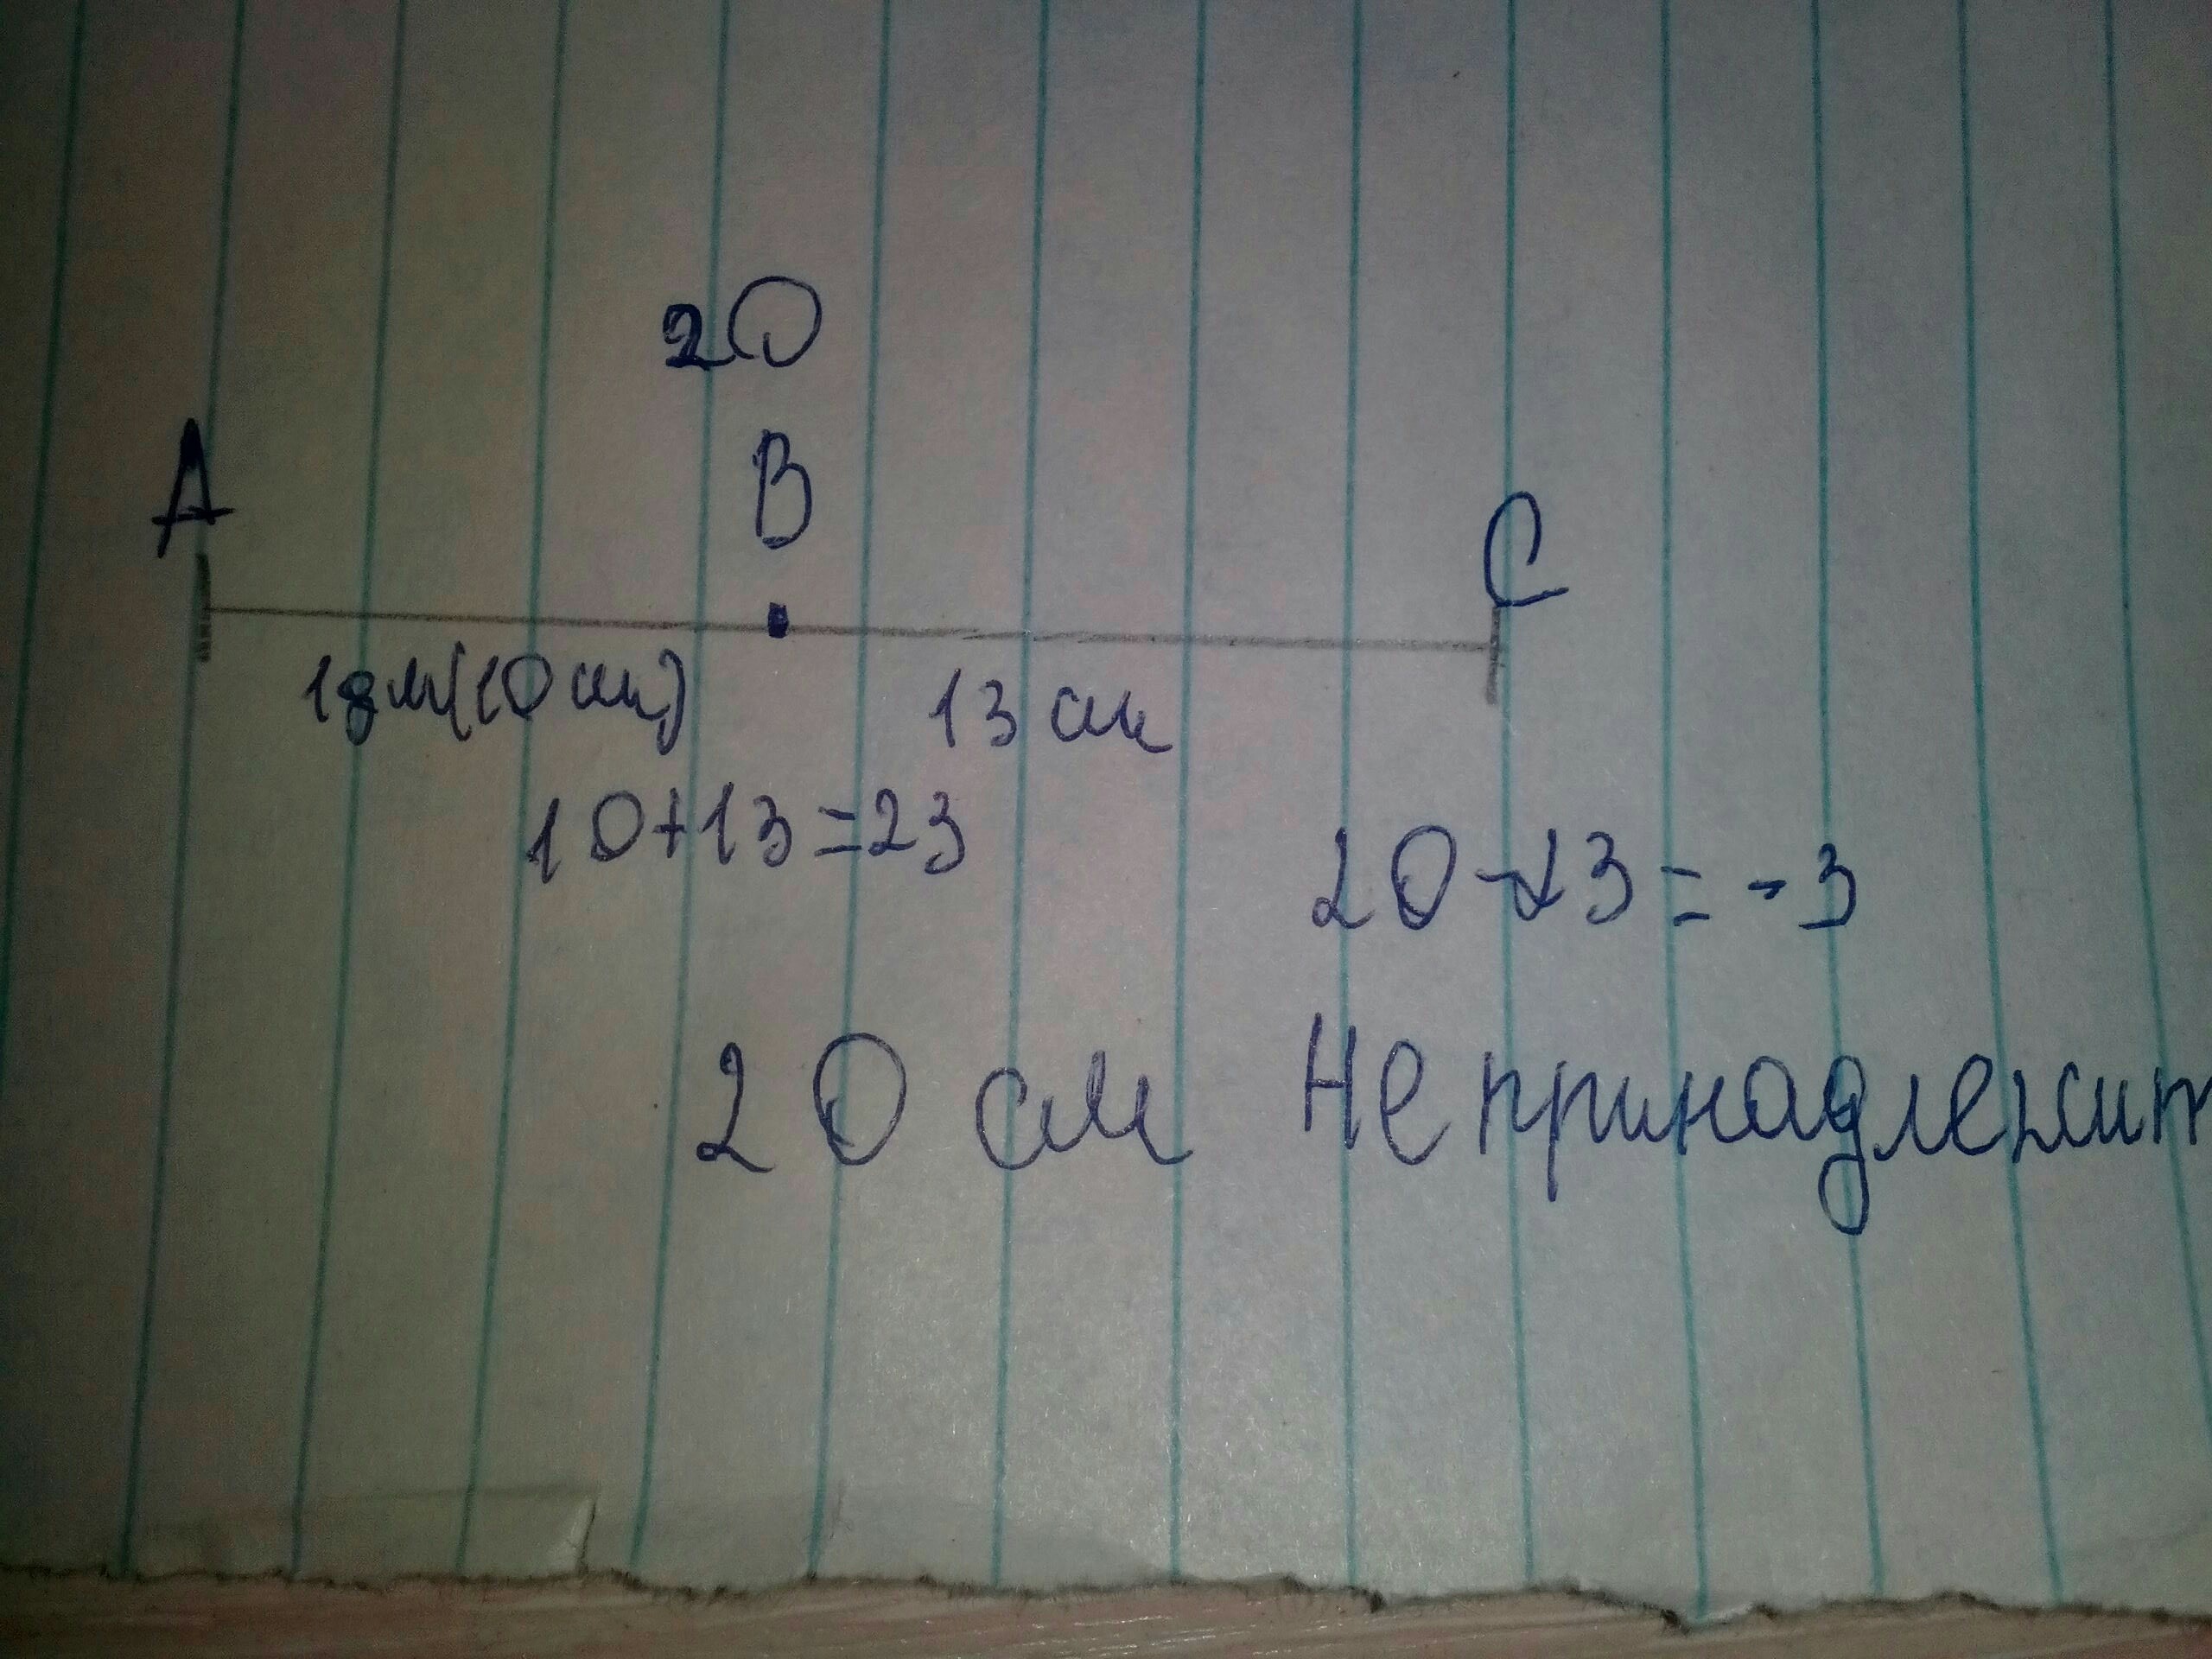 20
А В С
1дм(10 см) 13 см
10+13=23
20-23=-3
20 см Не принадлежит